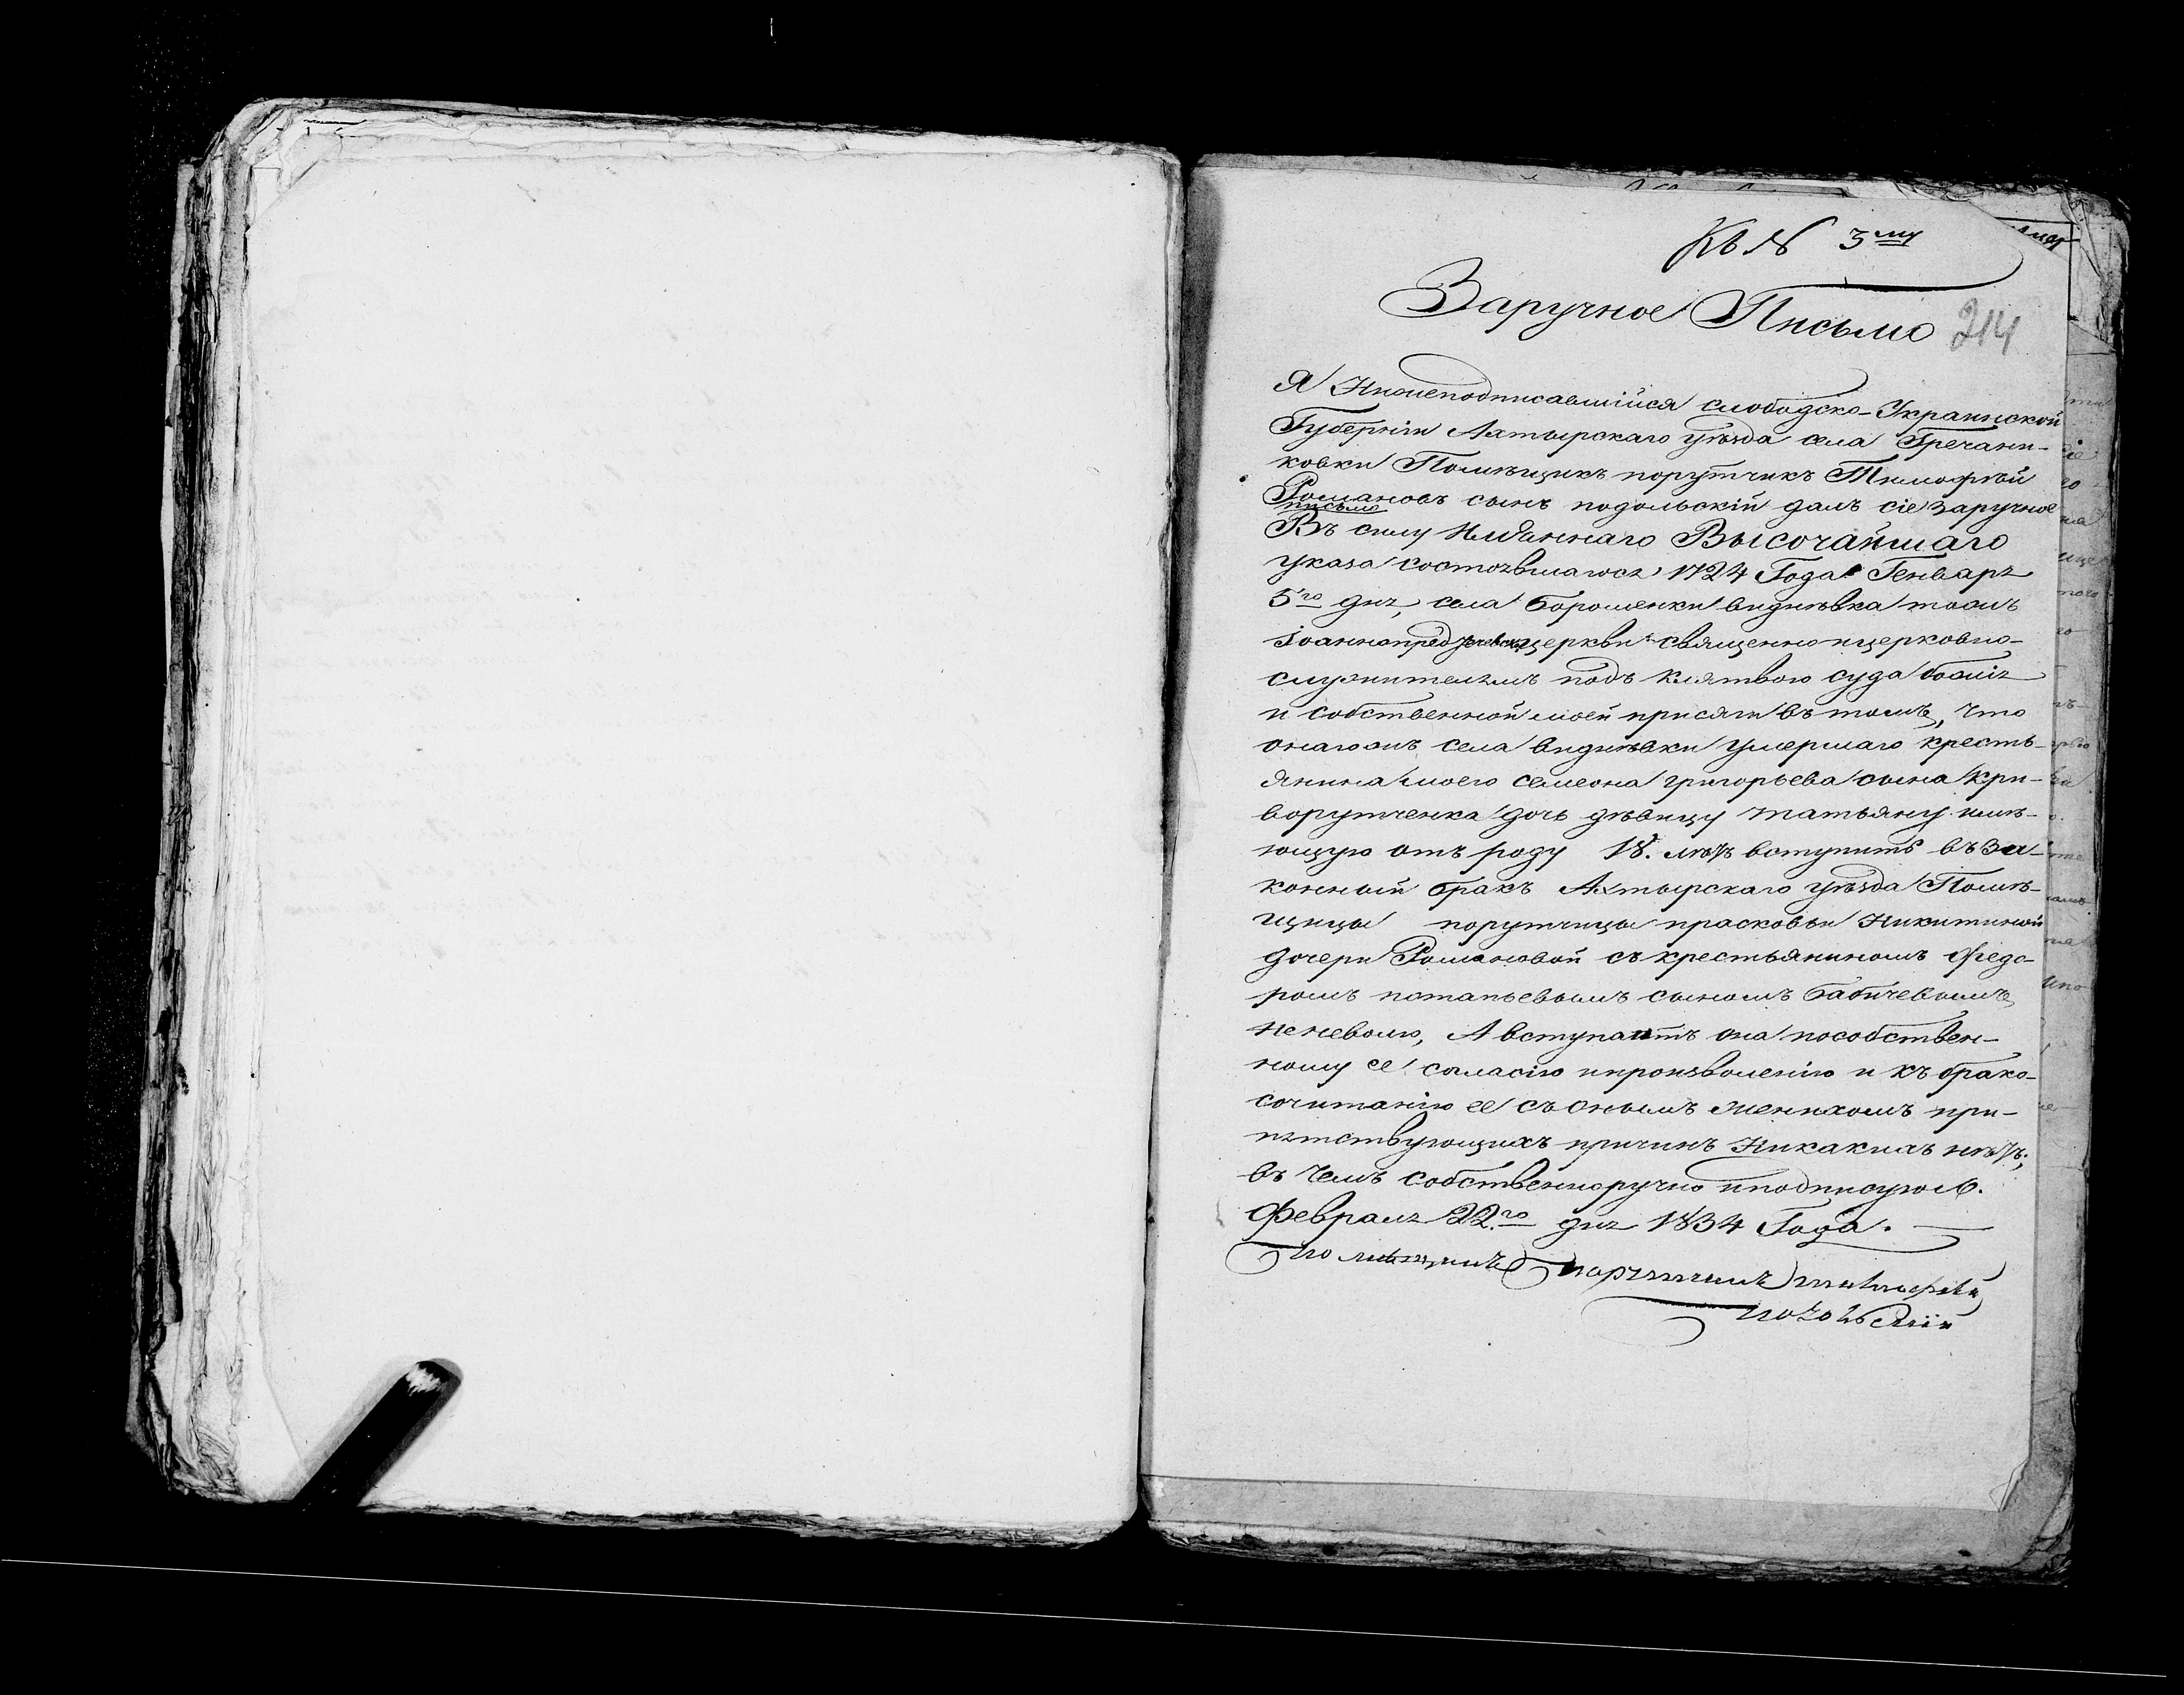 Къ № 3му
Заручное Письмо 214
Я Нижеподписавшійся слободско-Украинской
Губерніи Ахтырскаго уѣзда села Гречани-
ковки Помѣщикъ порутчикъ Тимофѣй
Романовъ сынъ подольскій далъ сіе заручное
письмо
Въ силу Имяннаго Высочайшаго
указа состоявшагося 1724 Года Генваря
5го дня, села Бороменки видневка тожъ
іоаннопредтечевской церкви священноицерковно-
служителямъ подъ клятвою суда божія
и собственной моей присяги въ томъ, что
онагожъ села видневки умершаго кресть-
янина моего семеона григорьева сына кри-
ворутченка дочь дѣвицу татьяну имѣ-
ющую отъ роду 18. лѣтъ вступить въ за-
конный бракъ Ахтырскаго уѣзда Помѣ-
щицы порутчицы прасковьи Никитиной
дочери Романовой съ крестьяниномъ Федо-
ромъ потапьевымъ сыномъ бабичевымъ
неневолю, А вступаитъ она пособствен-
ному ее согласію ипроизволенію и къ брако-
сочитанію ее съ онымъ женихомъ при-
пятствующихъ причинъ Никакихъ нѣтъ;
въ чемъ собственноручно иподписуюсь.
Февраля 22.го дня 1834 Года.
помѣщикъ порутчикъ тимофей
подольскій